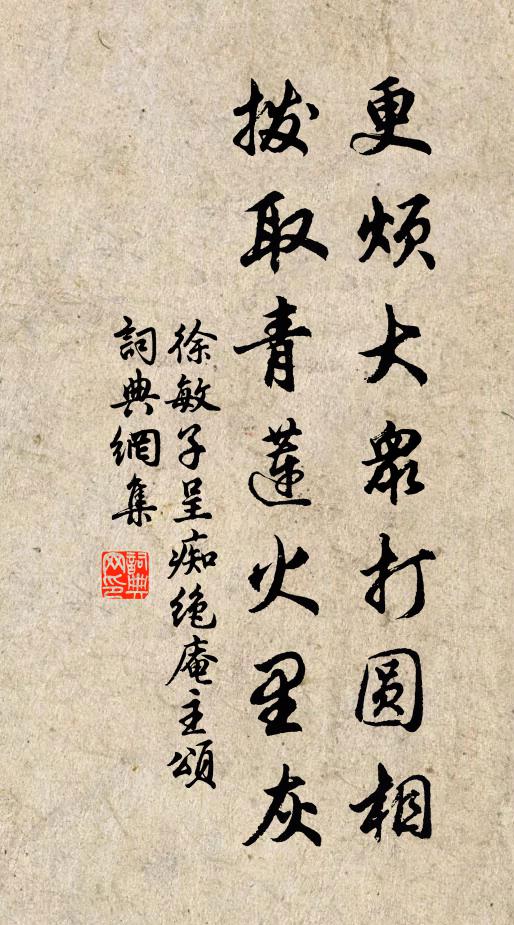 更烦大眾打圓相
拨取青莲火里灰
徐敏子呈痴绝庵主頌
詞典網集
詞典网印